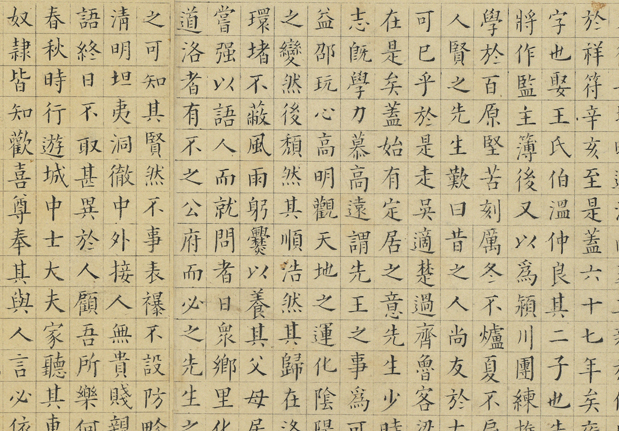 於祥符辛亥至是蓋六十七年矣
字也娶王氏伯溫仲良其二子也
將作監主簿後又以爲潁川團練推
學於百原堅苦刻厲冬不爐夏不扇
人賢之先生歎曰昔之人尚友於
可已乎於是走吳適楚過齊魯客梁
在是矣蓋始有定居之意先生少時
志旣學力慕高遠謂先王之事爲可
益邵玩心高明觀天地之運化陰陽
之變然後頹然其順浩然其歸在洛
環堵不蔽風雨躬爨以養其父母居
嘗强以語人而就問者日衆鄉里化
道洛者有不之公府而必之先生之
之可知其賢然不事表襮不設防畛
清明坦夷洞徹中外接人無貴賤親
語終日不取甚異於人顧吾所樂何
春秋時行遊城中士大夫家聽其車
奴隸皆知歡喜尊奉其與人言必依